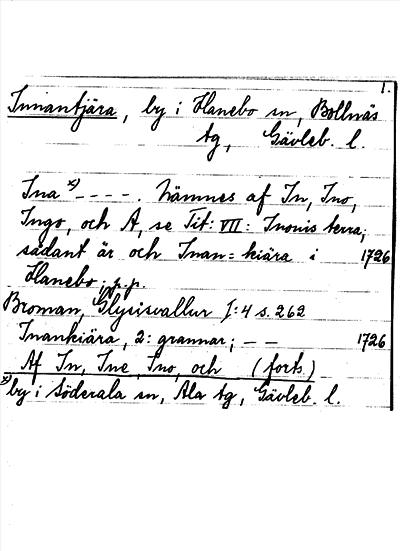 1.
Innantjära, by i Hanebo sn, Bollnäs
tg, Gävleb. l.
Ina x) ---- . Nämnes af In, Ino,
Ingo, och A, se Tit: VII: Inonis terra;
sådant är och Inan=kiära i 1726
Hanebo, p.p.
Broman, Glysisvallur I:4 s. 262
Inankiära, 2: grannar; — — 1726
Af In, Ine, Ino, och (forts.)
x) by i Söderala sn, Ala tg, Gävleb. l.